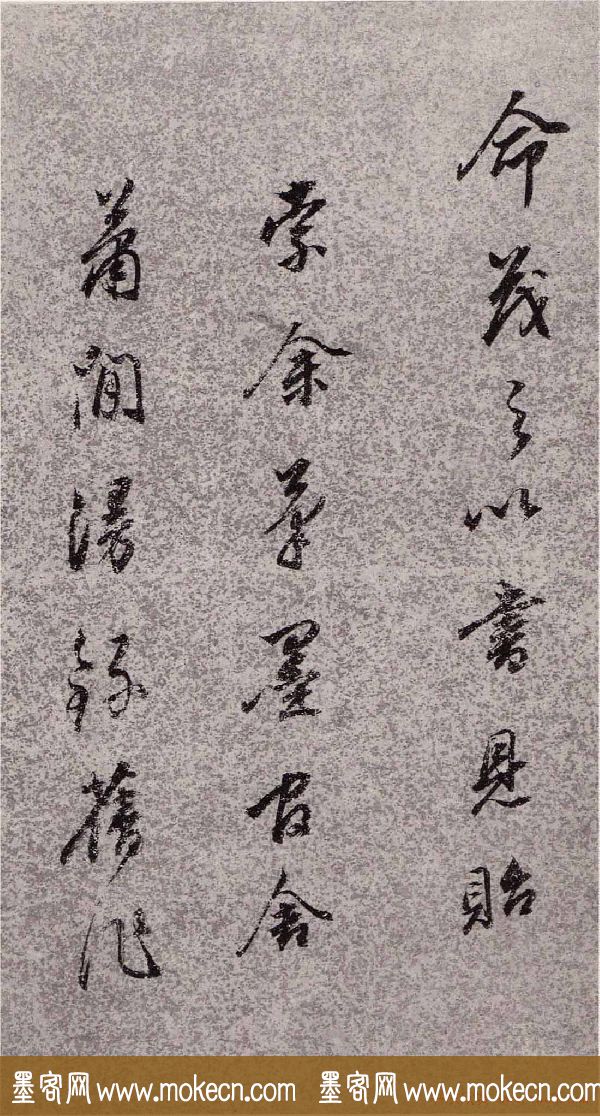 命茂之以書見貽
索余筆墨官舍
蕭閒漫錄舊作
墨客网 www.mokecn.com 墨客网 www.mokecn.com